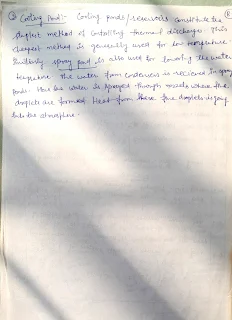 Cooling Pond:- Cooling ponds/reservoirs constitute the
simplest method of controlling thermal discharge. This
cheapest method is generally used for low temperature
Similarly spray pond is also used for lowering the water
temperature. The water from condenser is received in spray
pond. Here the water is sprayed through nozzels where fine
droplets are formed. Heat from these fine droplets is going
into the atmosphere.